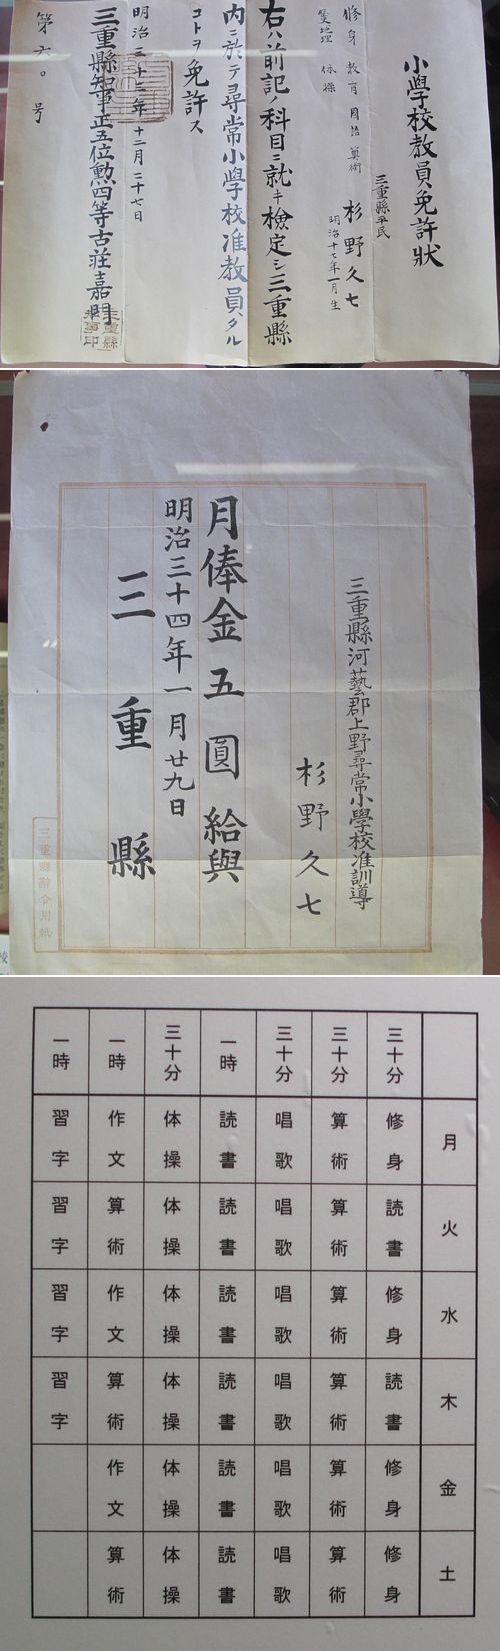 小學校教員免許狀
三重縣平民
杉野久七
明治十七年一月生
修身 教育 國語 算術
地理 体操
右ハ前記ノ科目ニ就キ檢定シ三重縣
内ニ於テ尋常小學校准教員タル
コトヲ免許ス
明治三十二年十二月二十七日
三重縣知事正五位勲四等古荘嘉門
第六〇号
三重縣河藝郡上野尋常小學校准訓導
杉野久七
月俸金五圓給與
明治三十四年一月廿九日
三重縣
三重縣辭令用紙
三十分 三十分 三十分 一時 三十分 一時 一時
月 修身 算術 唱歌 読書 体操 作文 習字
火 読書 算術 唱歌 読書 体操 算術 習字
水 修身 算術 唱歌 読書 体操 作文 習字
木 読書 算術 唱歌 読書 体操 算術 習字
金 修身 算術 唱歌 読書 体操 作文
土 修身 算術 唱歌 読書 体操 算術